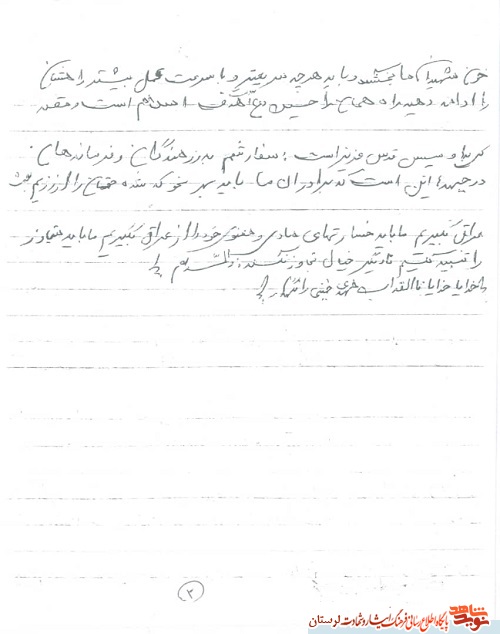 خون شهیدان ما بخشید و باید هر چه سریعتر و با سرعت عمل بیشتر راهشان
را ادامه دهید راه همان راه حسین (ع) و هدف اسلام است و مقصد
کربلا و سپس قدس عزیز است؛ سفارشم به رزمندگان و فرماندهان
در جبهه‌ها این است که برادران ما باید بهر نحو که شده حقمان را از رژیم بعث
عراق بگیریم ما باید خسارتهای مادی و معنوی خود را از عراق بگیریم ما باید متجاوز
را تنبیه کنیم تا دیگر خیال تجاوز نکند؛ والسلام
خدایا خدایا تا انقلاب مهدی خمینی را نگهدار
۳
شاهد
نوید
پایگاه اطلاع رسانی فرهنگ ایثار و شهادت لرستان